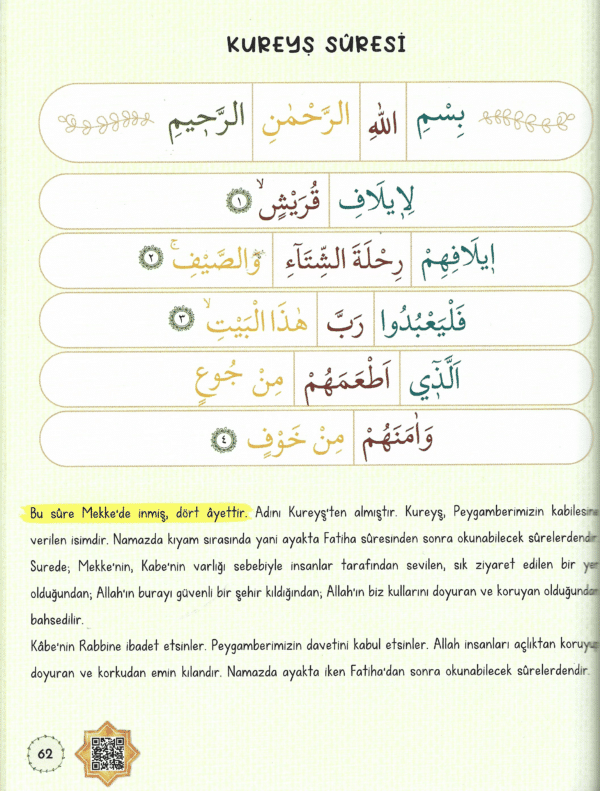 KUREYŞ SÛRESİ
بِسْمِ اللهِ الرَّحْمٰنِ الرَّحٖيمِ
لِاٖيلَافِ قُرَيْشٍۙ ﴿١﴾
اٖيلَافِهِمْ رِحْلَةَ الشِّتَٓاءِ وَالصَّيْفِۚ ﴿٢﴾
فَلْيَعْبُدُوا رَبَّ هٰذَا الْبَيْتِۙ ﴿٣﴾
اَلَّذٖٓي اَطْعَمَهُمْ مِنْ جُوعٍ
وَاٰمَنَهُمْ مِنْ خَوْفٍ ﴿٤﴾
Bu sûre Mekke'de inmiş, dört âyettir. Adını Kureyş'ten almıştır. Kureyş, Peygamberimizin kabilesine
verilen isimdir. Namazda kıyam sırasında yani ayakta Fatiha sûresinden sonra okunabilecek sûrelerdendir.
Surede; Mekke'nin, Kabe'nin varlığı sebebiyle insanlar tarafından sevilen, sık ziyaret edilen bir yer
olduğundan; Allah'ın burayı güvenli bir şehir kıldığından; Allah'ın biz kullarını doyuran ve koruyan olduğundan
bahsedilir.
Kâbe'nin Rabbine ibadet etsinler. Peygamberimizin davetini kabul etsinler. Allah insanları açlıktan koruyup
doyuran ve korkudan emin kılandır. Namazda ayakta iken Fatiha'dan sonra okunabilecek sûrelerdendir.
62